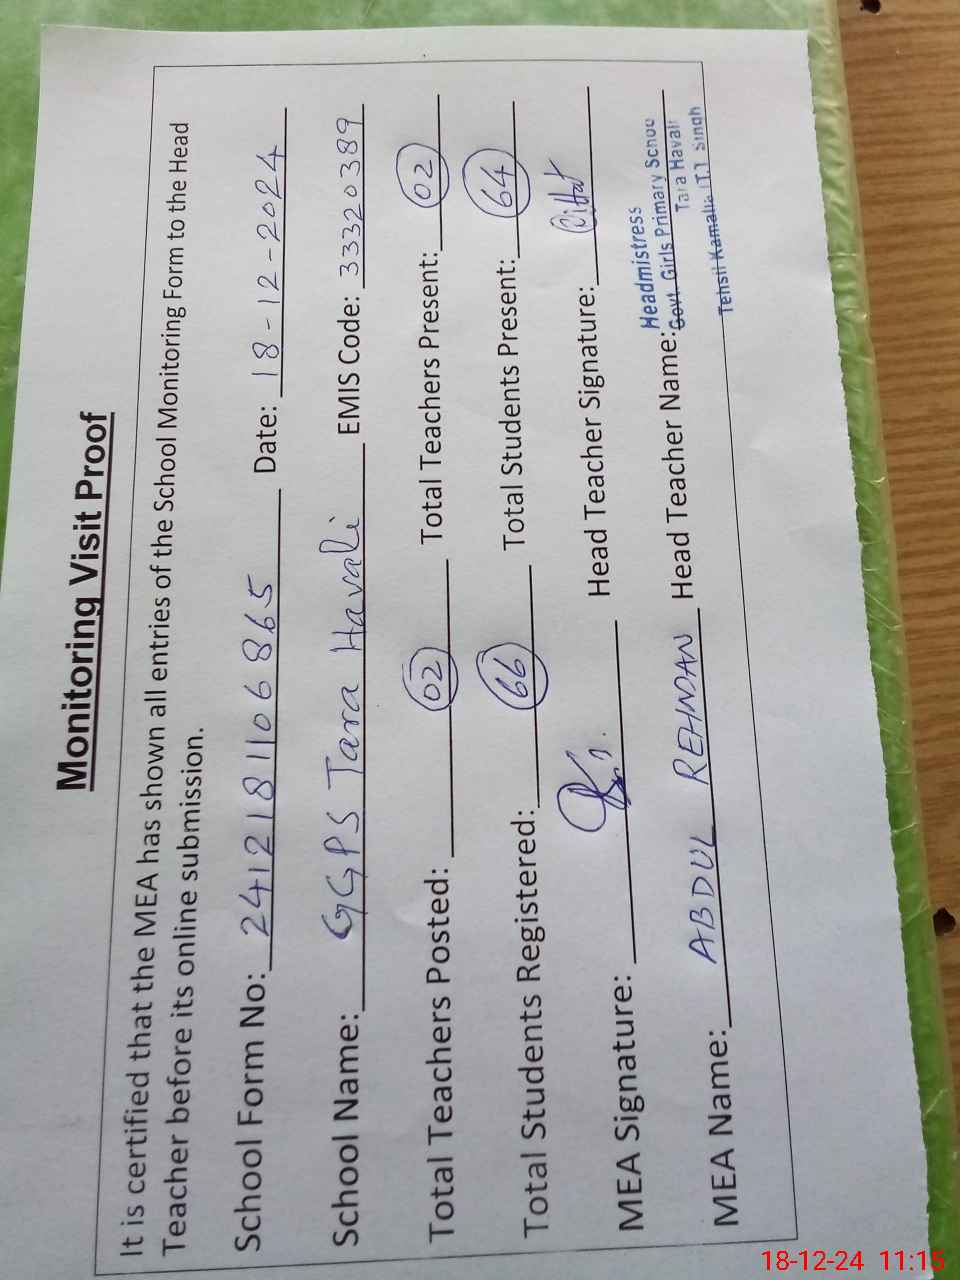 Monitoring Visit Proof
It is certified that the MEA has shown all entries of the School Monitoring Form to the Head
Teacher before its online submission.
School Form No: 2412181106865 Date: 18-12-2024
School Name: GGPS Tara Havali EMIS Code: 33320389
Total Teachers Posted: 02 Total Teachers Present: 02
Total Students Registered: 66 Total Students Present: 64
MEA Signature: Head Teacher Signature:
MEA Name: ABDUL REHMAN Head Teacher Name:
Headmistress
Govt. Girls Primary Schoo
Tara Havali
Tehsil Kamalia (T.T Singh
18-12-24 11:15